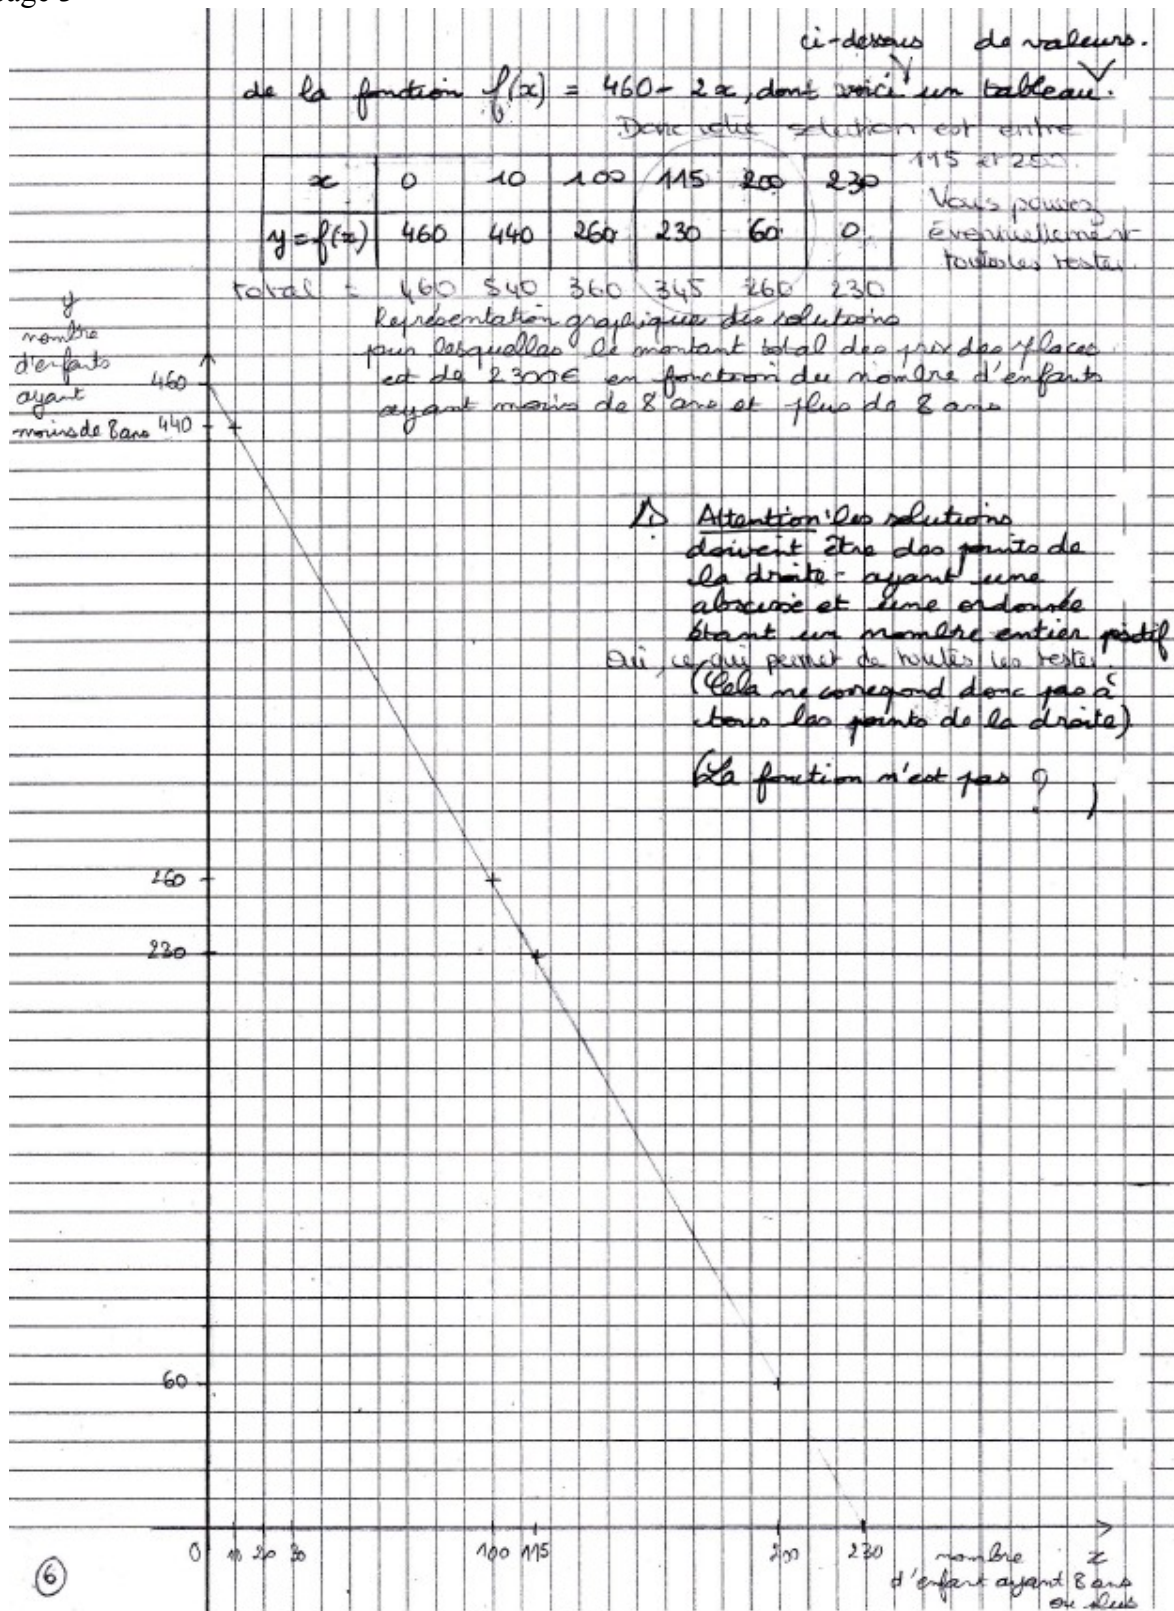 ci-dessous de valeurs.
de la fonction f(x) = 460 - 2x, dont voici un tableau.
Donc votre solution est entre
115 et 200.
Vous pouvez
éventuellement
toutes les tester.
x 0 10 100 115 200 230
y = f(x) 460 440 260 230 60 0
total = 460 540 360 345 260 230
Représentation graphique des solutions
pour lesquelles le montant total des prix des places
est de 2300€ en fonction du nombre d'enfants
ayant moins de 8 ans et plus de 8 ans
y
nombre
d'enfants
ayant
moins de 8 ans
460
440
Attention: les solutions
doivent être des points de
la droite - ayant une
abscisse et une ordonnée
étant un nombre entier positif
Oui, ce qui permet de toutes les tester.
(Cela ne correspond donc pas à
tous les points de la droite)
(La fonction n'est pas ? )
260
230
60
0 10 20 30 100 115 200 230
nombre x
d'enfant ayant 8 ans
ou plus
6